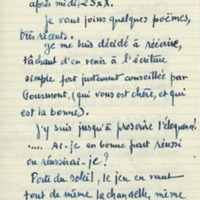 après midi, 25 x X.
je vous joins quelques poëmes,
très récents.
je me suis décidé à réécrire,
tâchant d'en venir à l'écriture
simple fort justement conseillée par
Gourmont, (qui vous est chère, et qui
est la bonne).
J'y suis jusqu'à proscrire l'éloquence!
..... Ai-je en bonne part réussi
ou réussirai-je?
Porte du soleil, le jeu en vaut
tout de même la chandelle, même